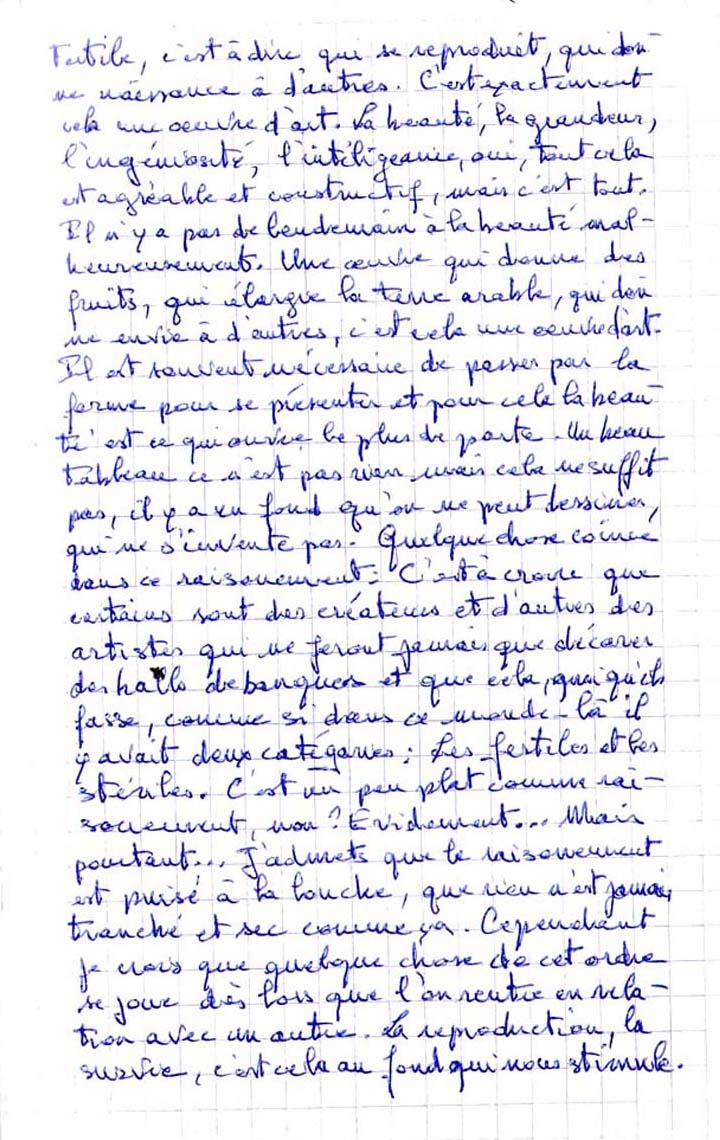 Fertile, c'est à dire qui se reproduit, qui don-
ne naissance à d'autres. C'est exactement
cela une oeuvre d'art. La beauté, la grandeur,
l'ingéniosité, l'intéligeance, oui, tout cela
est agréable et constructif, mais c'est tout.
Il n'y a pas de lendemain à la beauté mal-
heureusement. Une oeuvre qui donne des
fruits, qui élargie la terre arable, qui don-
ne envie à d'autres, c'est cela une oeuvre d'art.
Il est souvent nécessaire de passer par la
forme pour se présenter et pour cela la beau-
té est ce qui ouvre le plus de porte. Un beau
tableau ce n'est pas rien mais cela ne suffit
pas, il y a un fond qu'on ne peut dessiner,
qui ne s'invente pas. Quelque chose coince
dans ce raisonnement: C'est à croire que
certains sont des créateurs et d'autres des
artistes qui ne feront jamais que décorer
des halls de banques et que cela, quoi qu'ils
fasse, comme si dans ce monde-là il
y avait deux catégories; Les fertiles et les
stériles. C'est un peu plat comme rai-
sonnement, non? Evidement... Mais
pourtant... J'admets que le raisonement
est puisé à la louche, que rien n'est jamais
tranché et sec comme ça. Cependant
je crois que quelque chose de cet ordre
se joue dès lors que l'on rentre en rela-
tion avec un autre. La reproduction, la
survie, c'est cela au fond qui nous stimule.